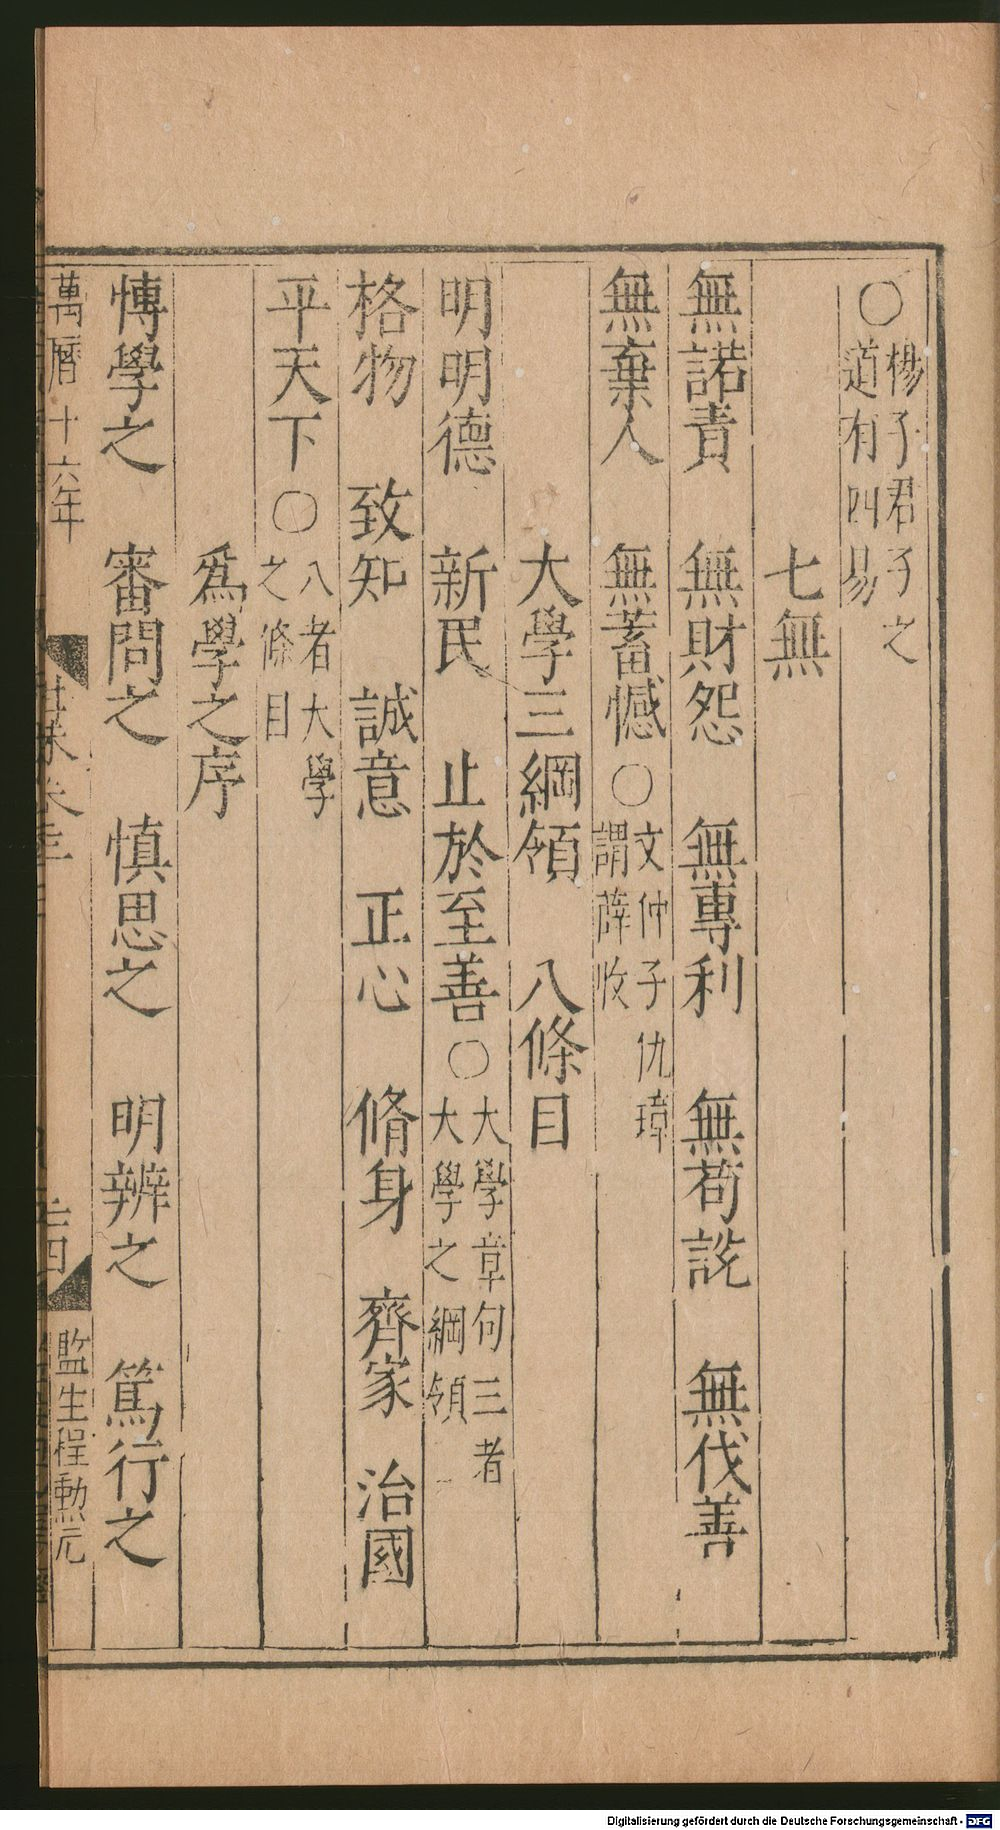 ○楊子君子之道有四易
七無
無諾責　無財怨　無專利　無苟說　無伐善
無棄人　無蓄憾○文仲子仇璋謂薛收
大學三綱領　八條目
明明德　新民　止於至善○大學章句三者大學之綱領
格物　致知　誠意　正心　脩身　齊家　治國
平天下○八者大學之條目
爲學之序
博學之　審問之　慎思之　明辨之　篤行之
萬曆十六年
監生程勲元
Digitalisierung gefördert durch die Deutsche Forschungsgemeinschaft - DFG